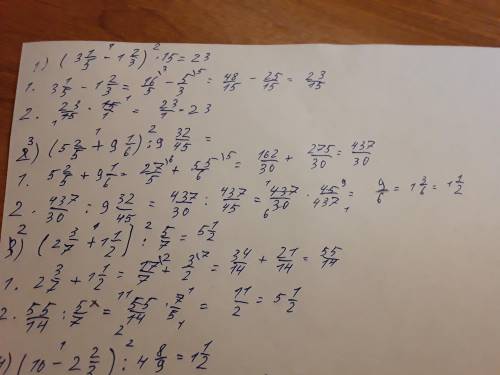 1) (3 1/5 - 1 2/3) · 15 = 23
1. 3 1/5 - 1 2/3 = 16/5 - 5/3 = 48/15 - 25/15 = 23/15
2. 23/15 · 15/1 = 23/1 = 23
3) (5 2/5 + 9 1/6) : 9 32/45 =
1. 5 2/5 + 9 1/6 = 27/5 + 55/6 = 162/30 + 275/30 = 437/30
2. 437/30 : 9 32/45 = 437/30 : 437/45 = 437/30 · 45/437 = 9/6 = 1 3/6 = 1 1/2
2) (2 3/7 + 1 1/2) : 5/7 = 5 1/2
1. 2 3/7 + 1 1/2 = 17/7 + 3/2 = 34/14 + 21/14 = 55/14
2. 55/14 : 5/7 = 55/14 · 7/5 = 11/2 = 5 1/2
4) (10 - 2 2/3) : 4 8/9 = 1 1/2